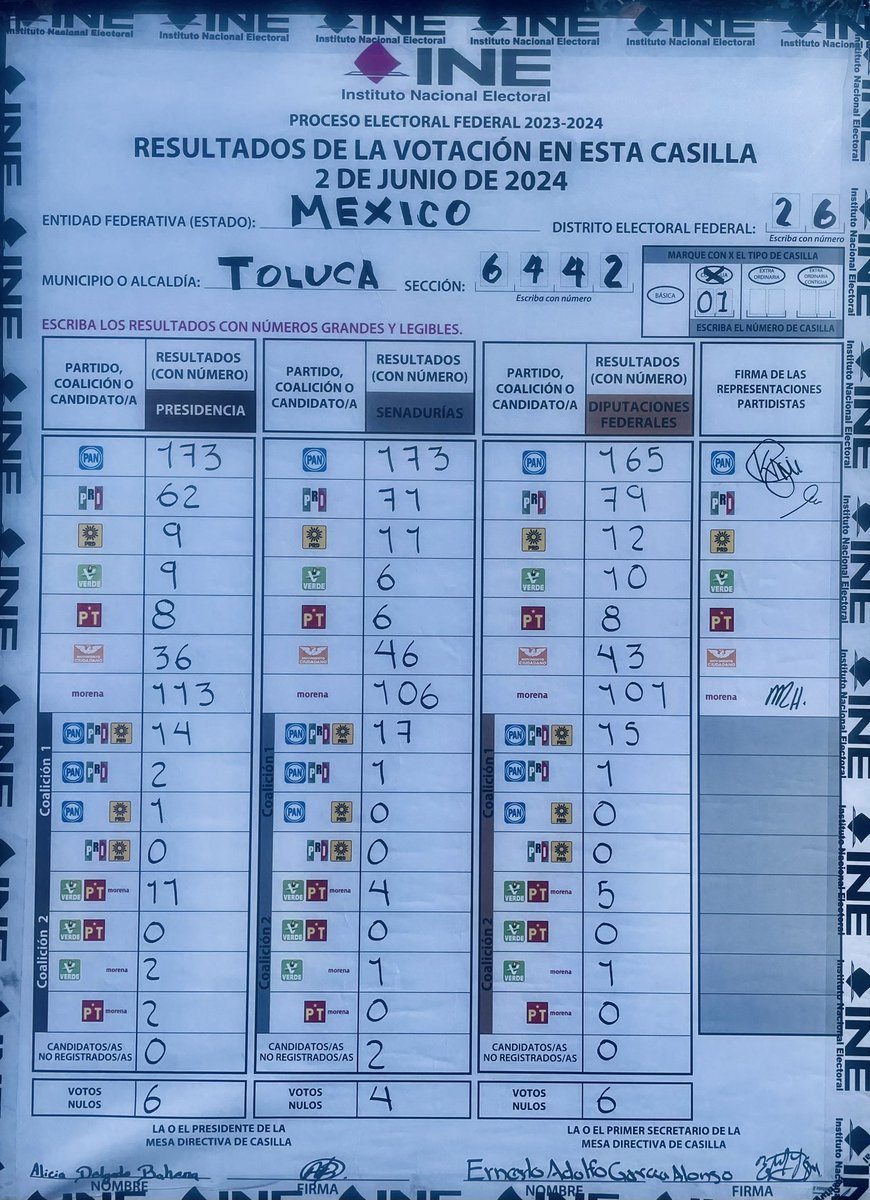 INE
Instituto Nacional Electoral
PROCESO ELECTORAL FEDERAL 2023-2024
RESULTADOS DE LA VOTACIÓN EN ESTA CASILLA
2 DE JUNIO DE 2024
ENTIDAD FEDERATIVA (ESTADO): MEXICO DISTRITO ELECTORAL FEDERAL: 26
Escriba con número
MUNICIPIO O ALCALDÍA: TOLUCA SECCIÓN: 6442
Escriba con número
MARQUE CON X EL TIPO DE CASILLA
BÁSICA 01 EXTRA ORDINARIA EXTRA ORDINARIA CONTIGUA
ESCRIBA EL NÚMERO DE CASILLA
ESCRIBA LOS RESULTADOS CON NÚMEROS GRANDES Y LEGIBLES.
PARTIDO, COALICIÓN O CANDIDATO/A RESULTADOS (CON NÚMERO) PRESIDENCIA PARTIDO, COALICIÓN O CANDIDATO/A RESULTADOS (CON NÚMERO) SENADURÍAS PARTIDO, COALICIÓN O CANDIDATO/A RESULTADOS (CON NÚMERO) DIPUTACIONES FEDERALES FIRMA DE LAS REPRESENTACIONES PARTIDISTAS
PAN 173 PAN 173 PAN 165 PAN
PRI 62 PRI 71 PRI 79 PRI
PRD 9 PRD 11 PRD 12 PRD
VERDE 9 VERDE 6 VERDE 10 VERDE
PT 8 PT 6 PT 8 PT
MOVIMIENTO CIUDADANO 36 MOVIMIENTO CIUDADANO 46 MOVIMIENTO CIUDADANO 43 MOVIMIENTO CIUDADANO
morena 113 morena 106 morena 101 morena MH.
Coalición 1 Coalición 1 Coalición 1
PAN PRI PRD 14 PAN PRI PRD 17 PAN PRI PRD 15
PAN PRI 2 PAN PRI 1 PAN PRI 1
PAN PRD 1 PAN PRD 0 PAN PRD 0
PRI PRD 0 PRI PRD 0 PRI PRD 0
Coalición 2 Coalición 2 Coalición 2
VERDE PT morena 11 VERDE PT morena 4 VERDE PT morena 5
VERDE PT 0 VERDE PT 0 VERDE PT 0
VERDE morena 2 VERDE morena 1 VERDE morena 1
PT morena 2 PT morena 0 PT morena 0
CANDIDATOS/AS NO REGISTRADOS/AS 0 CANDIDATOS/AS NO REGISTRADOS/AS 2 CANDIDATOS/AS NO REGISTRADOS/AS 0
VOTOS NULOS 6 VOTOS NULOS 4 VOTOS NULOS 6
LA O EL PRESIDENTE DE LA MESA DIRECTIVA DE CASILLA LA O EL PRIMER SECRETARIO DE LA MESA DIRECTIVA DE CASILLA
Alicia Delgado Bahena Ernesto Adolfo Garcia Alonso
NOMBRE FIRMA NOMBRE FIRMA